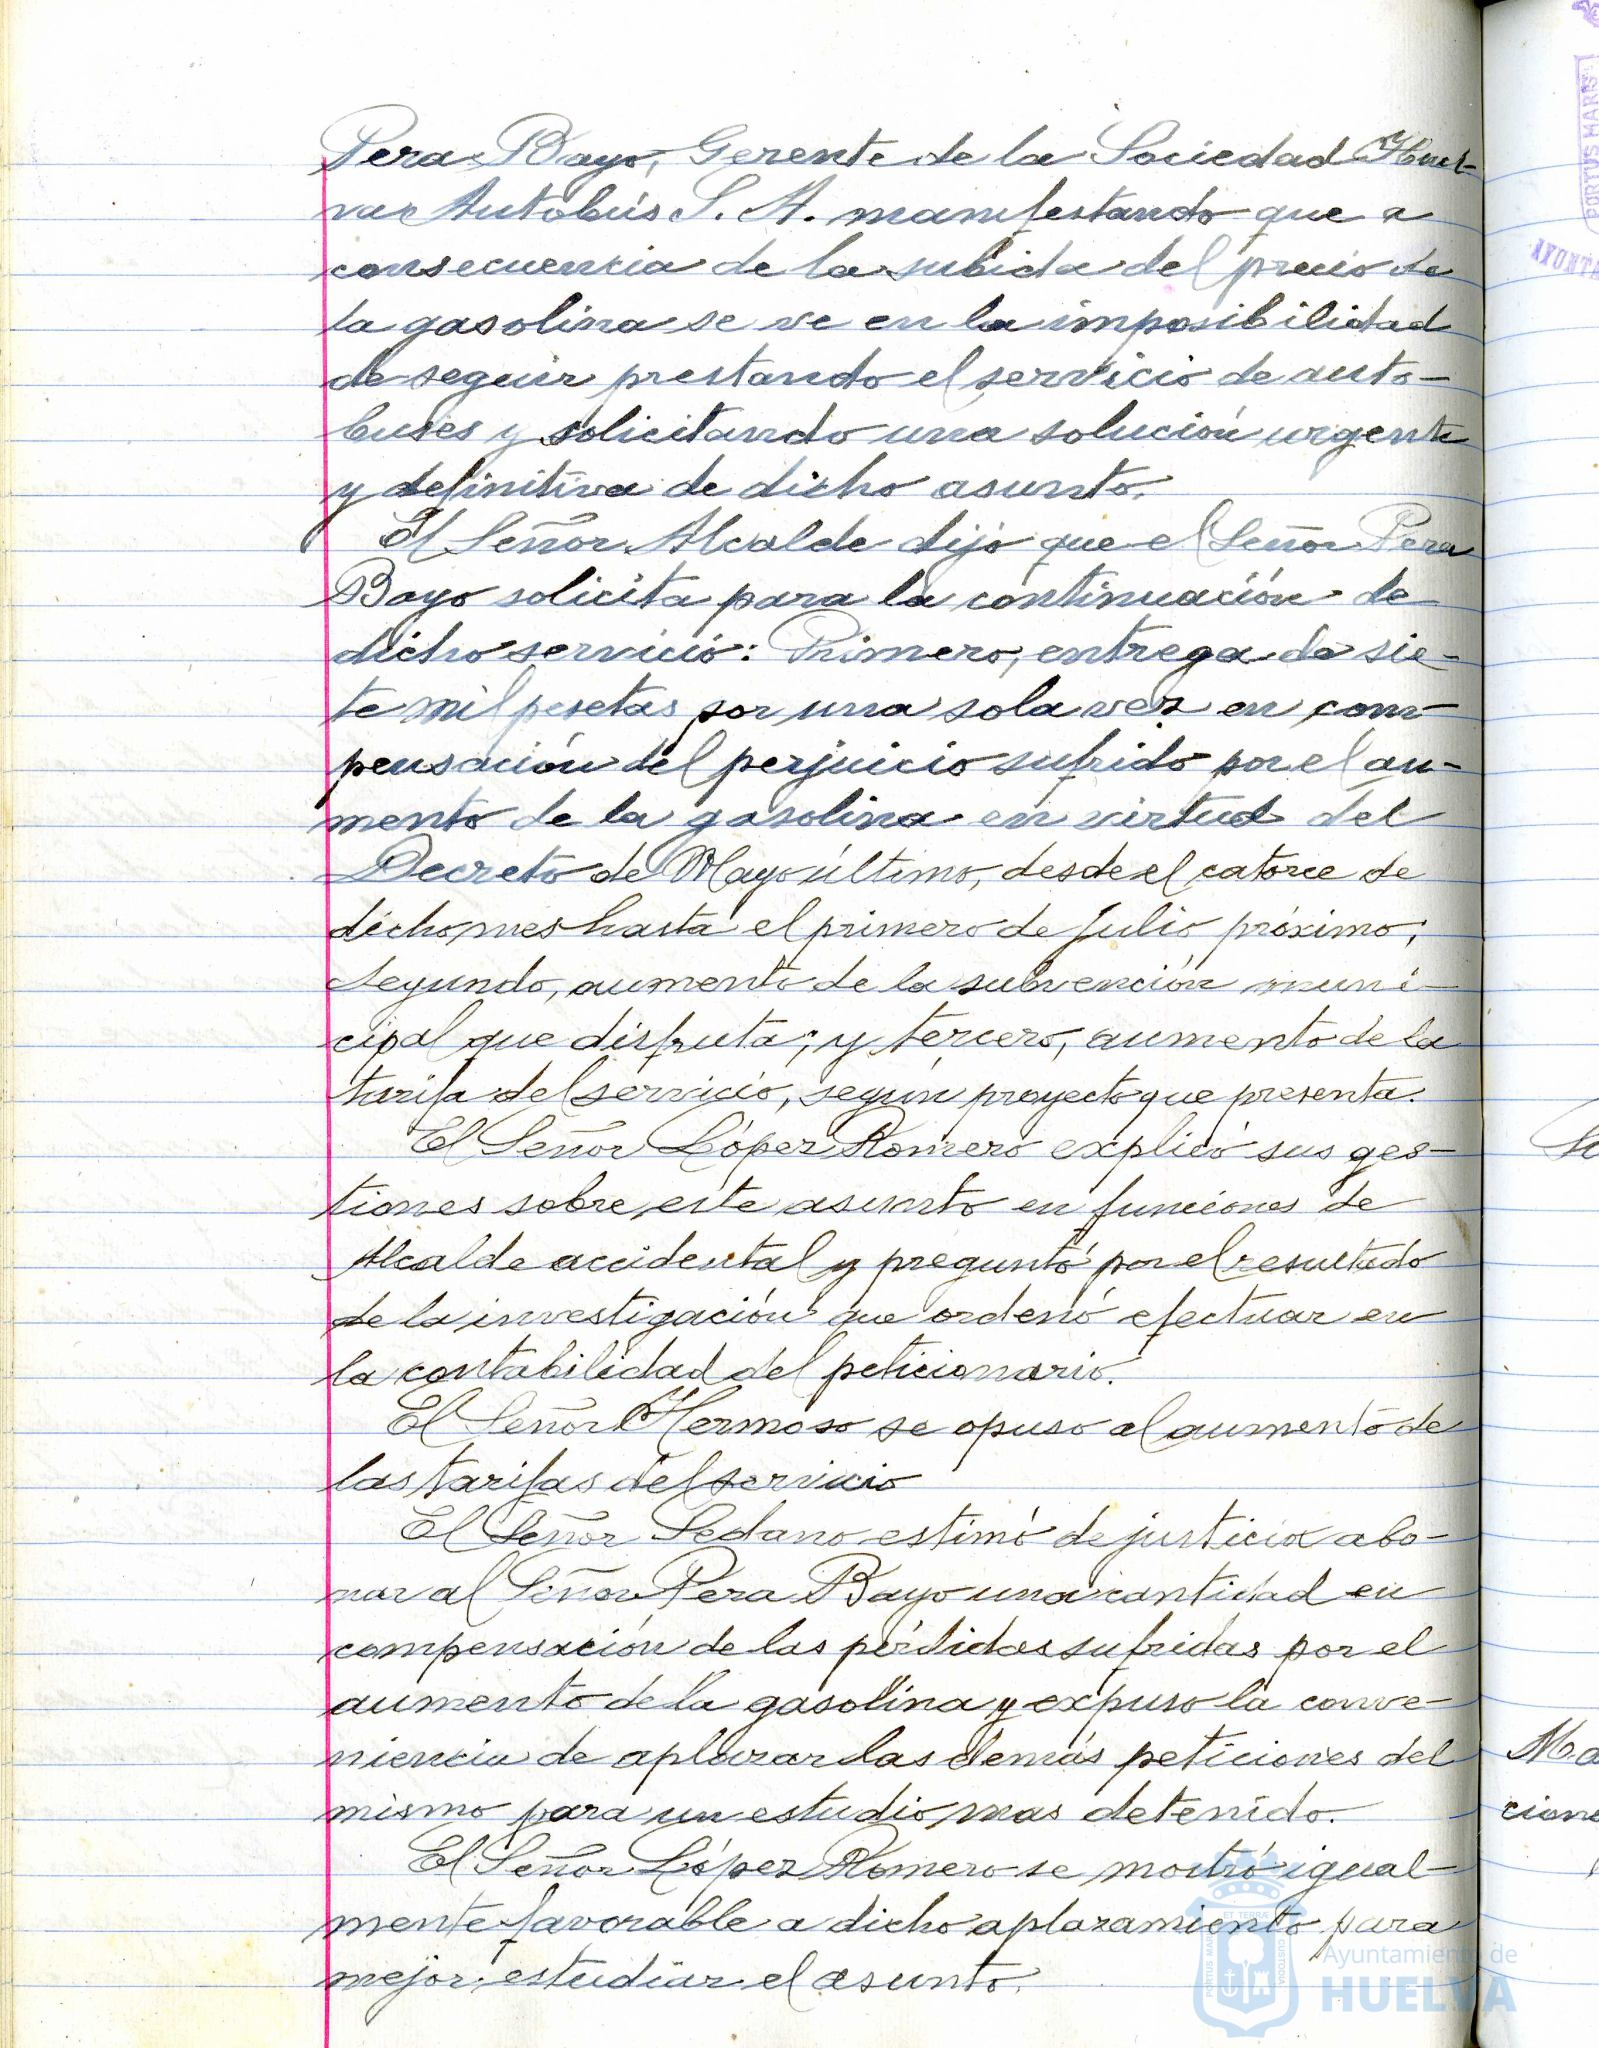 Pera Bayo, Gerente de la Sociedad Huel-
va Autobús S. A. manifestando que a
consecuencia de la subida del precio de
la gasolina se ve en la imposibilidad
de seguir prestando el servicio de auto-
buses y solicitando una solución urgente
y definitiva de dicho asunto.
El Señor Alcalde dijo que el Señor Pera
Bayo solicita para la continuación de
dicho servicio: Primero, entrega de sie-
te mil pesetas por una sola vez en com-
pensación del perjuicio sufrido por el au-
mento de la gasolina en virtud del
Decreto de Mayo último, desde el catorce de
dicho mes hasta el primero de Julio próximo;
Segundo, aumento de la subvención muni-
cipal que disfruta; y tercero, aumento de la
tarifa del servicio, según proyecto que presenta.
El Señor López Romero explicó sus ges-
tiones sobre este asunto en funciones de
Alcalde accidental y preguntó por el resultado
de la investigación que ordenó efectuar en
la contabilidad del peticionario.
El Señor Hermoso se opuso al aumento de
las tarifas del servicio
El Señor Sedano estimó de justicia abo-
nar al Señor Pera Bayo una cantidad en
compensación de las pérdidas sufridas por el
aumento de la gasolina y expuso la conve-
niencia de aplazar las demás peticiones del
mismo para un estudio mas detenido.
El Señor López Romero se mostró igual-
mente favorable a dicho aplazamiento para
mejor estudiar el asunto.
PORTUS MARIS
AYUNTA
cione
PORTUS MARIS ET TERRAE CUSTODIA
Ayuntamiento de
HUELVA